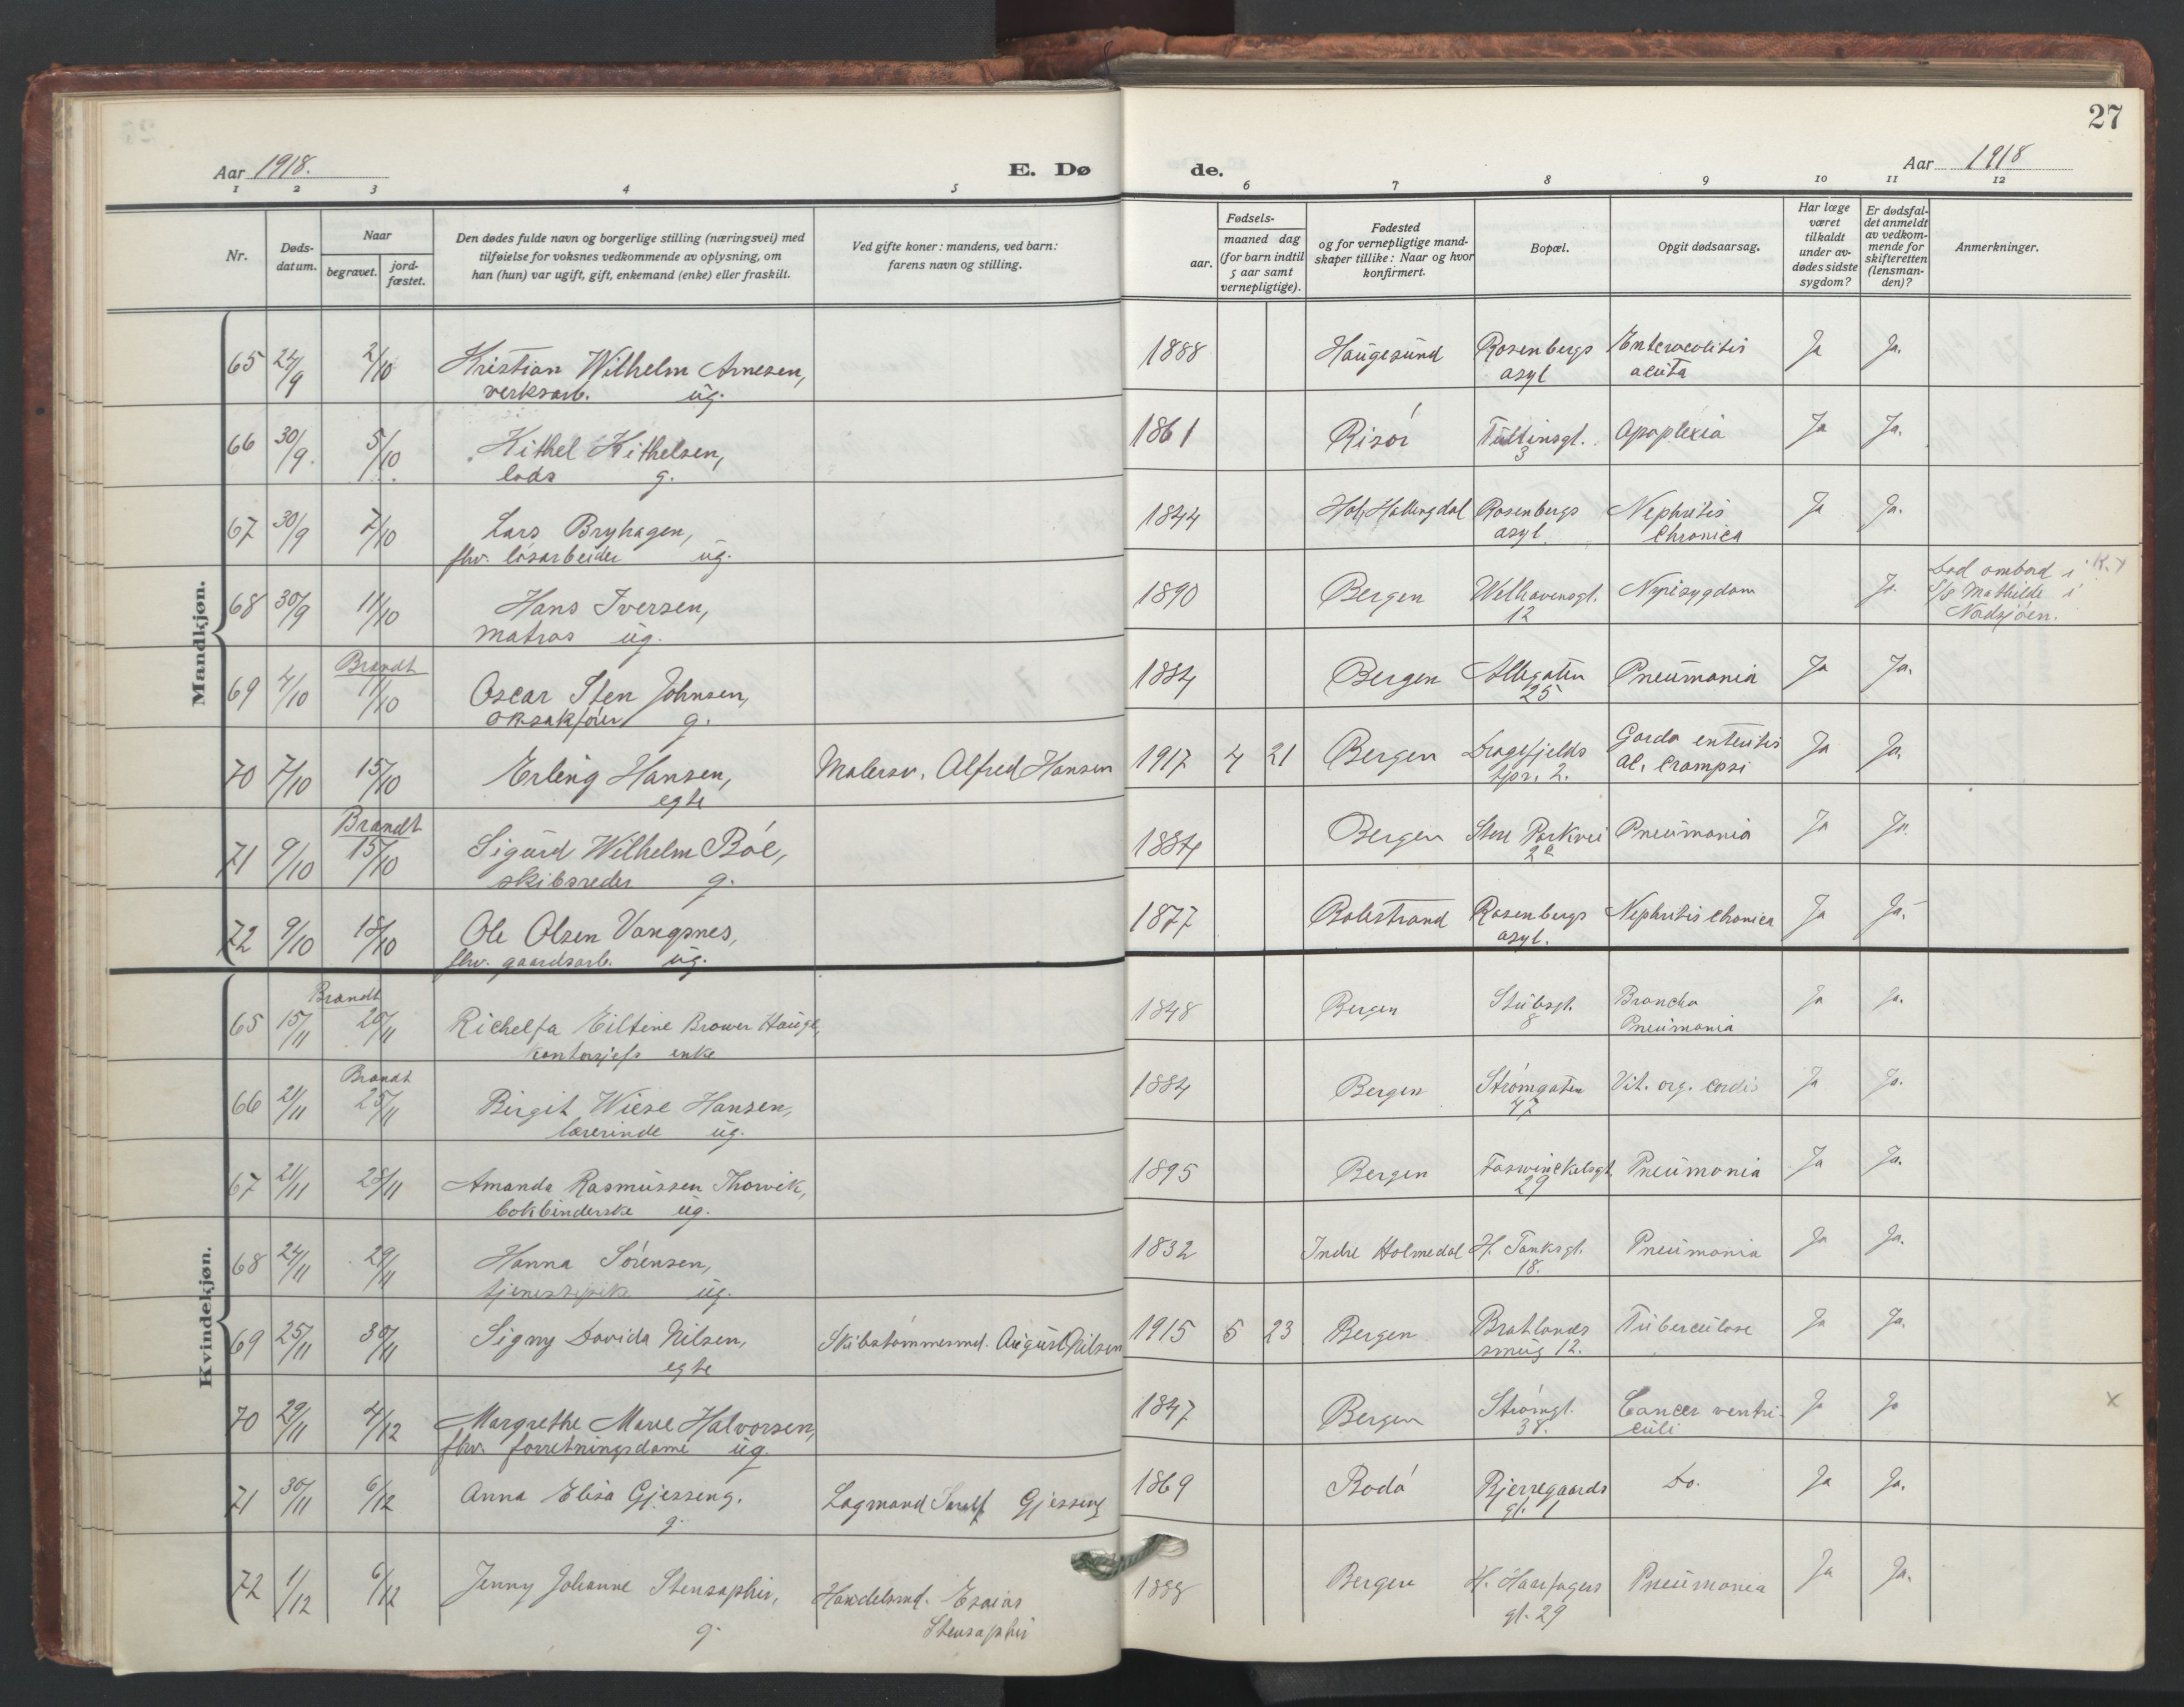 27
Aar 1918.
E. Dø
de.
Aar 1918
1 2 3 4 5 6 7 8 9 10 11 12
Nr.
Døds-
datum.
Naar
begravet.
jord-
fæstet.
Den dødes fulde navn og borgerlige stilling (næringsvei) med
tilføielse for voksnes vedkommende av oplysning, om
han (hun) var ugift, gift, enkemand (enke) eller fraskilt.
Ved gifte koner: mandens, ved barn:
farens navn og stilling.
Fødsels-
aar.
maaned dag
(for barn indtil
5 aar samt
vernepligtige).
Fødested
og for vernepligtige mand-
skaper tillike: Naar og hvor
konfirmert.
Bopæl.
Opgit dødsaarsag.
Har læge
været
tilkaldt
under av-
dødes sidste
sygdom?
Er dødsfal-
det anmeldt
av vedkom-
mende for
skifteretten
(lensman-
den)?
Anmerkninger.
Mandkjøn.
65 24/9 2/10 Kristian Wilhelm Arnesen, 1888 Haugesund Rosenbergs Enterocolitis Ja Ja.
verksarb. ug. asyl acuta
66 30/9. 5/10. Kithel Kithelsen, 1861 Risör Tultinsgt. Apoplexia Ja Ja.
lods g. 3
67 30/9 7/10 Lars Bryhagen, 1844 Hol, Hallingdal Rosenbergs Nephritis Ja Ja.
fhv. lösarbeider ug. asyl. Chronica
68 30/9 11/10 Hans Iversen, 1890 Bergen Welhavensgt. Nyresygdom Ja. Död ombord i K.x
matros ug. 12 S/s Mathilde i
Nordsjöen.
Brandt
69 4/10 11/10 Oscar Sten Johnsen, 1884 Bergen Allegaten Pneumonia Ja Ja.
O.R.sakförer g. 25
70 7/10 15/10 Erling Hansen, Malersv. Alfred Hansen 1917 4 21 Bergen Dragefjelds Ja Ja.
egte tpr. 2.
Brandt
71 9/10 15/10 Sigurd Wilhelm Böe, 1884 Bergen Store Parkvei Pneumonia Ja Ja.
skibsreder g. 2a
72 9/10 18/10 Ole Olsen Vangsnes, 1877 Balestrand Rosenbergs Nephritis Chonica Ja Ja.
fhv. gaardsarb. ug. asyl.
Kvindekjøn.
Brandt
65 15/11 20/11 Richelfa Eiltine Brower Hauge, 1848 Bergen Stubsgt. Broncho Ja Ja.
kontorsjefs enke 8 Pneumonia
Brandt
66 21/11 25/11 Birgit Wiese Hansen, 1884 Bergen Strömgaten Vit. org. cordis Ja Ja.
lærerinde ug. 47
67 21/11 28/11 Amanda Rasmussen Thorvik, 1895 Bergen Foswinckelsgt. Pneumonia Ja Ja.
bokbinderske ug. 29
68 24/11 29/11 Hanna Sörensen, 1832 Indre Holmedal H. Tanksgt. Pneumonia Ja Ja.
tjenestepik ug. 18.
69 25/11 30/11 Signy Davida Nilsen, Skibstömmermd. August Nilsen 1915 5 23 Bergen Bratlands Tuberculose Ja Ja.
egte smug 12.
70 29/11 4/12 Margrethe Marie Halvorsen, 1847 Bergen Strömgt. Cancer ventri- Ja Ja x
fhv. forretningsdame ug. 38. culi
71 30/11 6/12 Anna Elisa Gjessing, Lagmand Gjessing 1869 Bodö Bjerregaards Do. Ja Ja.
g. gt. 1
72 1/12 6/12 Jenny Johanne Stensaphir, Handelsmd. Esaias 1888 Bergen H. Haarfagers Pneumonia Ja Ja.
g. Stensaphir gt. 29